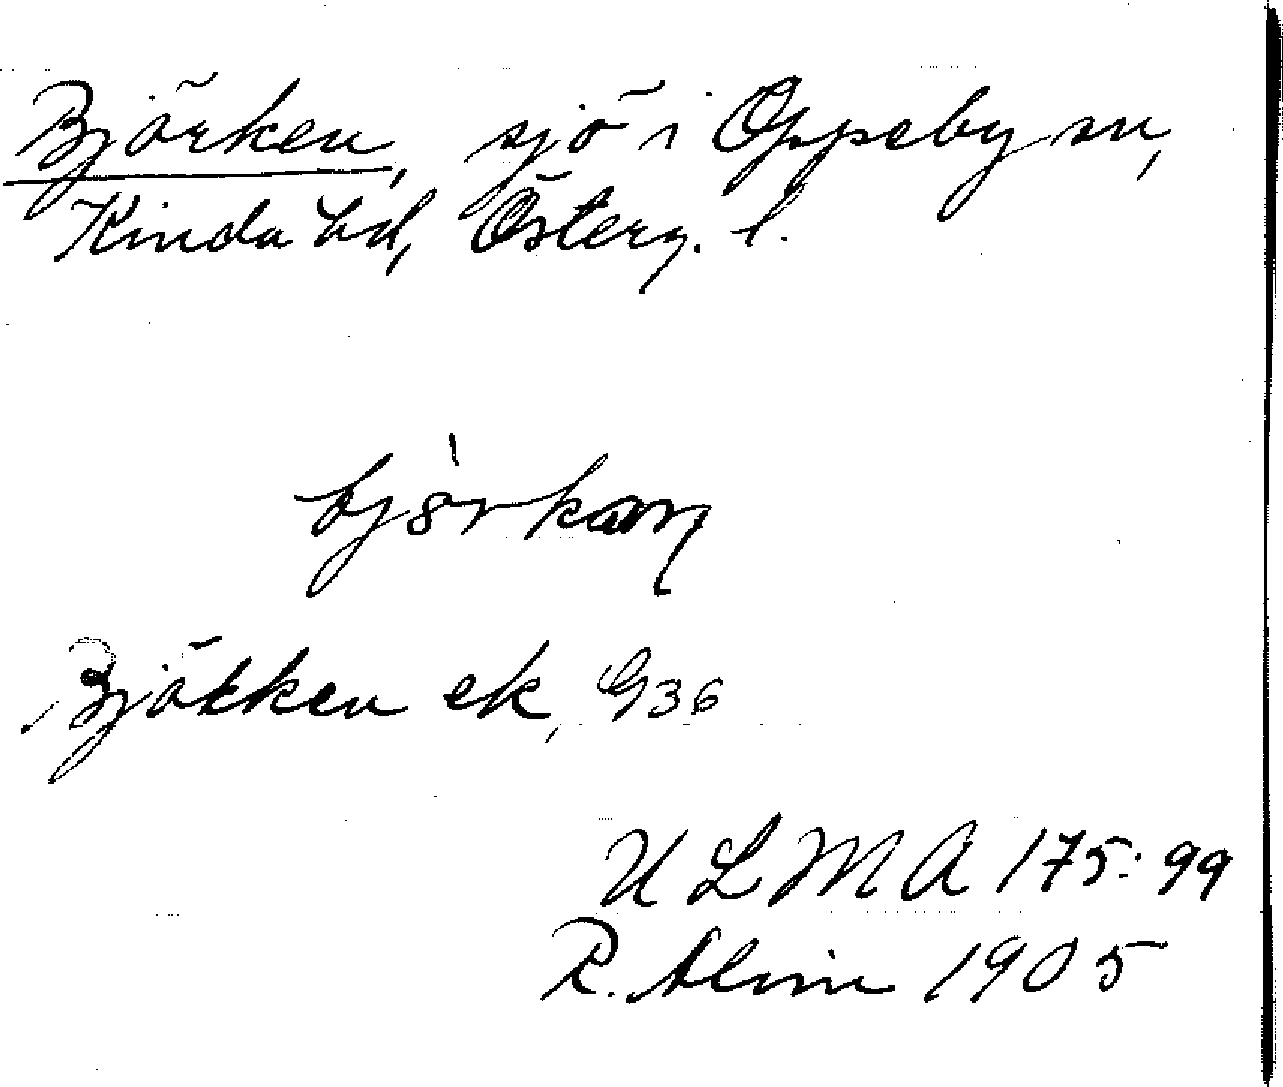 Björken, sjö i Oppeby sn,
Kinda hd, Österg. l.
björkan
Björken ek, G36
ULMA 175:99
R. Alm 1905